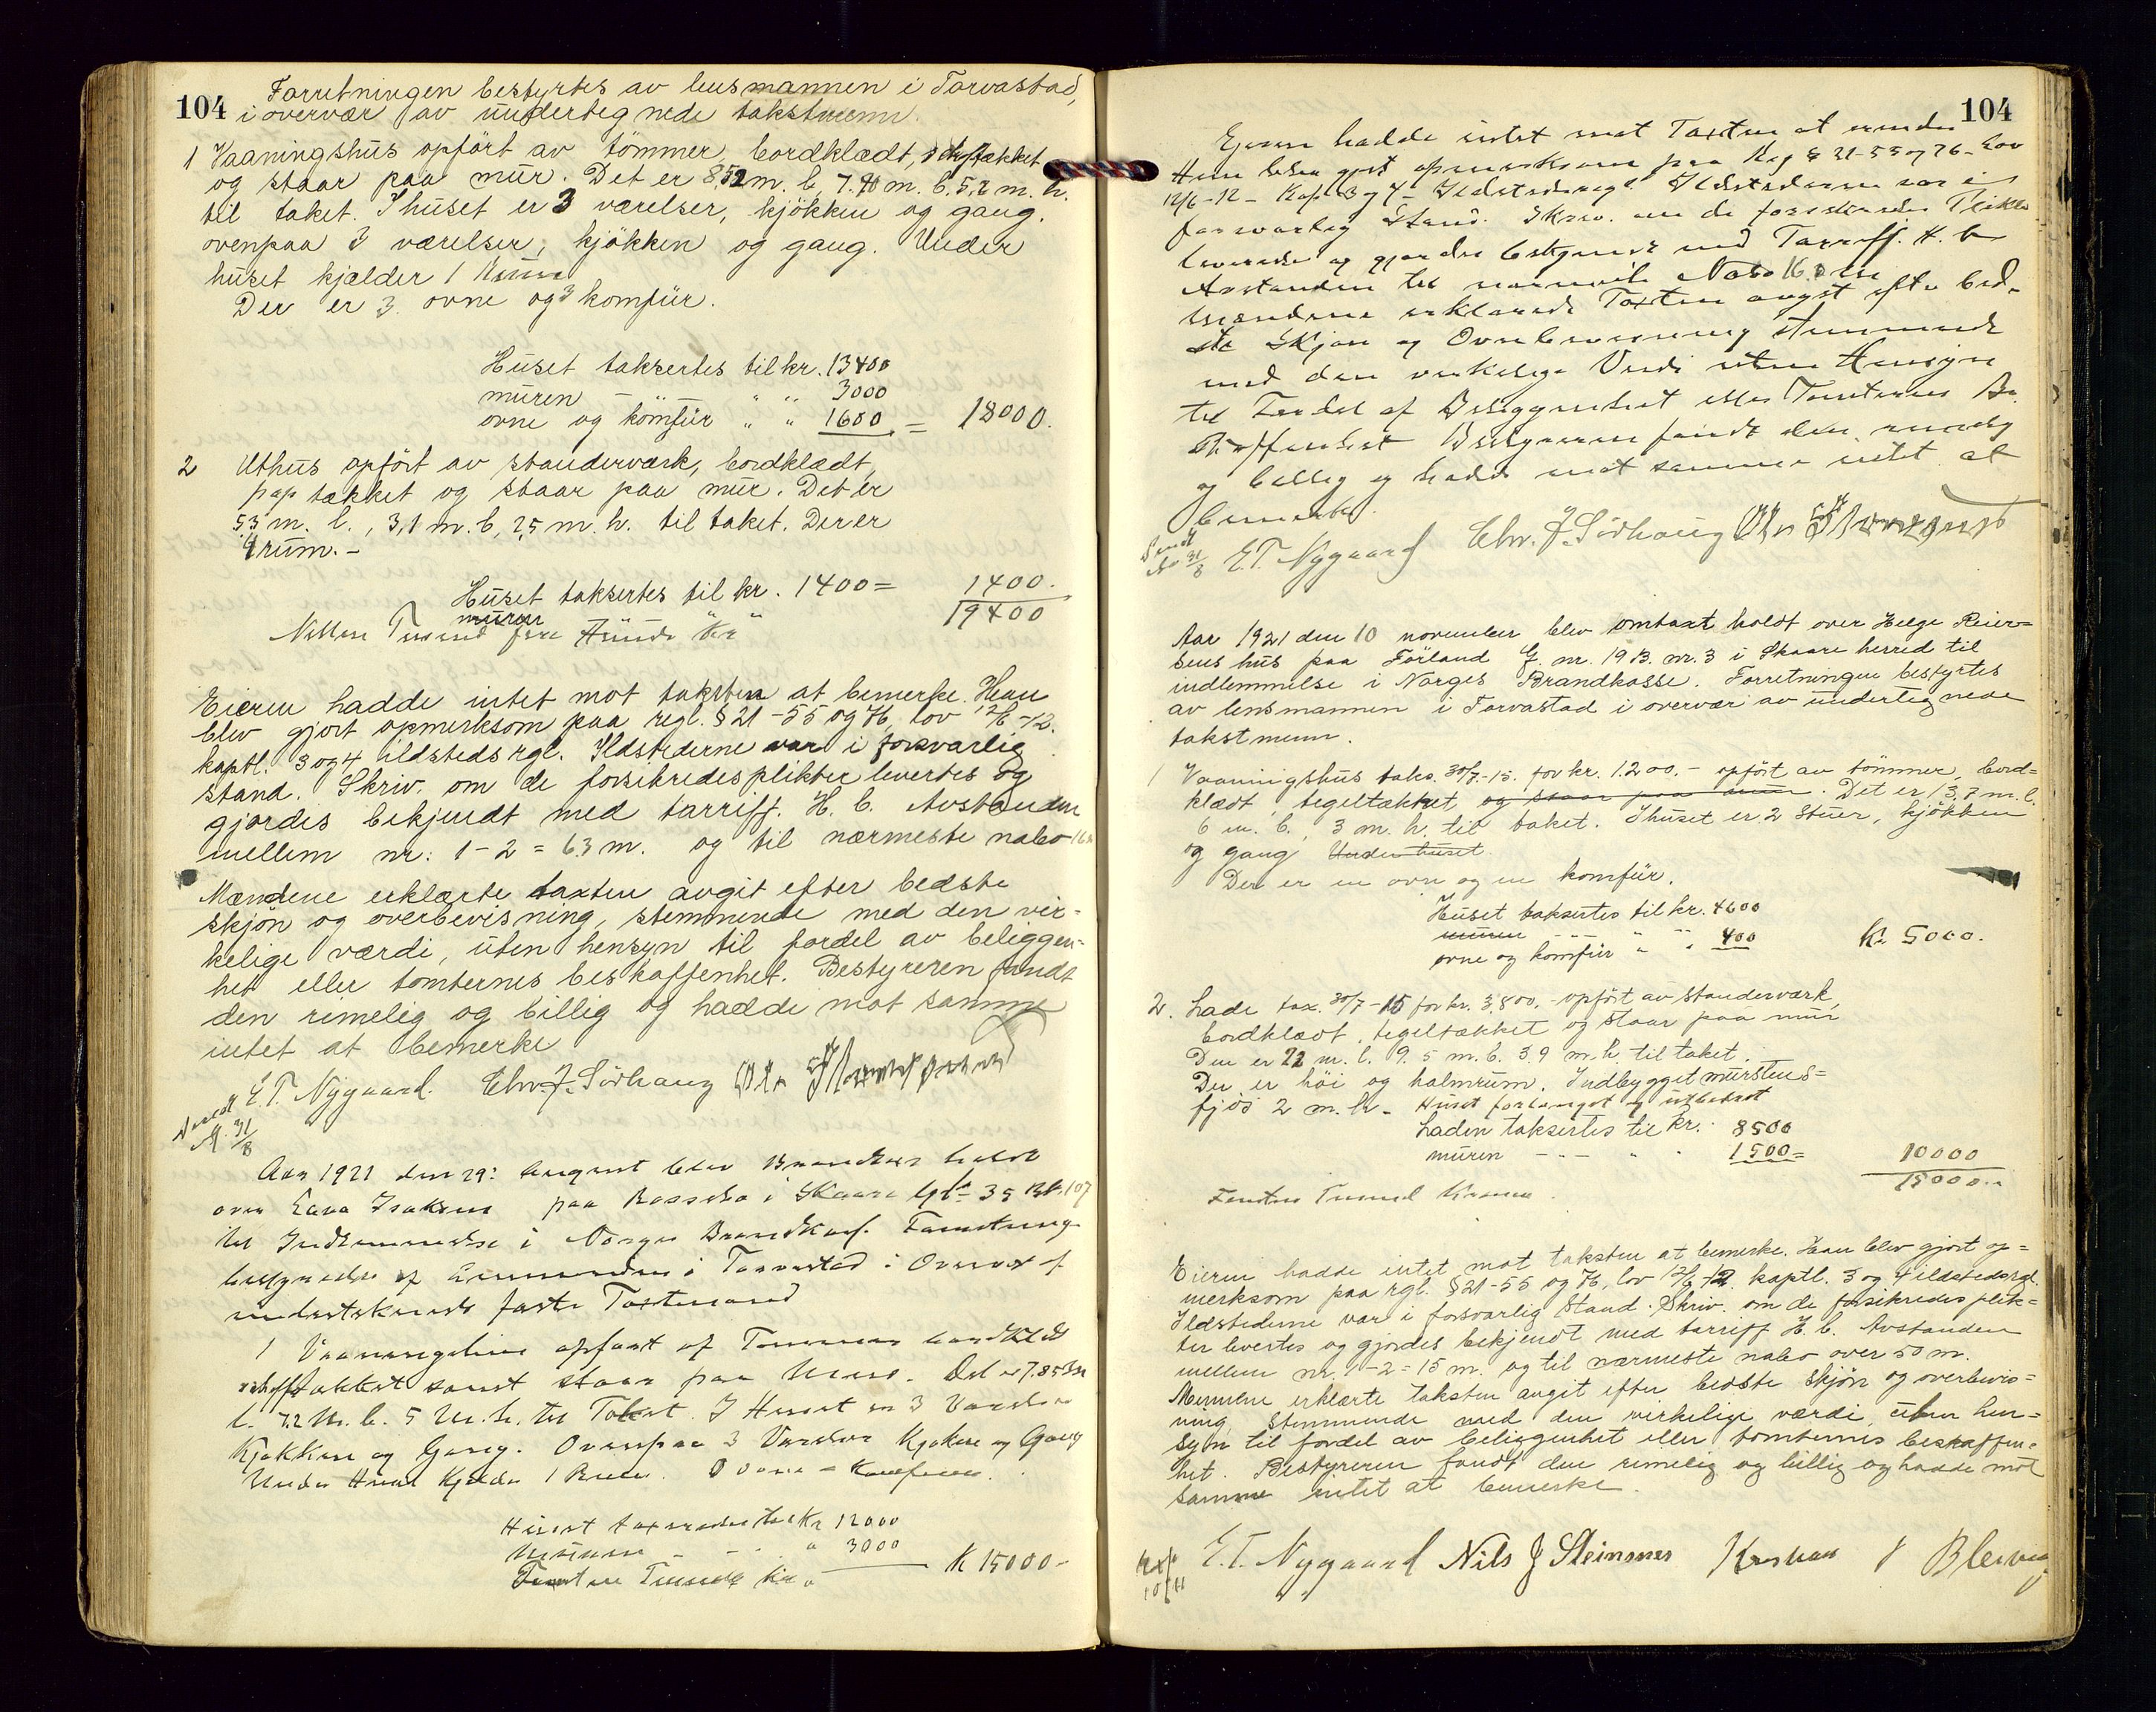 104
Forretningen bestyrtes av lensmannen i Torvastad,
i overvær av undertegnede takstmenn.
1 Vaaningshus opført av tømmer, bordklædt, skiftækket
og staar paa mur. Det er 8,52 m. l. 7.90 m. b. 5,2 m. h.
til taket. I huset er 3 værelser, kjökken og gang.
ovenpaa 3 værelser, kjökken og gang. Under
huset kjælder 1
Der er 3 ovne og 3 komfür.
Hüset takseres til kr. 13400
müren - " " 3000
ovne og komfür " " 1600 = 18000.
2 Uthüs opført av standerværk, bordklædt,
pap tækket og staar paa mür. Det er
5,3 m. l., 3,1 m. b, 2,5 m. h. til taket. Der er
1 rüm. -
Hüset taksertes til kr. 1400 = 1400.
müren " " 19400
Nitten Tusend fire Hündr Kr
Eieren hadde intet mot taksten at bemerke. Han
blev gjort opmerksom paa regl. § 21-55 og 76, lov 12/6-12.
kaptl. 3 og 4 ildsteds rgl. Ildstederne var i forsvarlig
stand. Skriv. om de forsikredes plikter levertes og
gjordes bekjendt med tarriff. H. b. Avstanden
mellem nr. 1-2 = 6.3 m. og til nærmeste nabo 16
Mændene erklærte taxten avgit efter bedste
skjön og overbevisning, stemmende med den vir-
kelige værdi, üten hensyn til fordel av beliggen-
het eller tomternes beskaffenhet. Bestyreren fandt
den rimelig og billig og hadde mot samme
intet at bemerke
E. T. Nygaard. Chr. J. Sörhaug Ole
31/8
Aar 1921 den 29: August blev Brandtaxt holdt
over Lava Isaksens paa i Skaare G№ 35 B№ 107
til Indlemmelse i Norges Brandkasse. Forretning
bestyredes af Lensmanden i Torvestad i Overvær af
undertegnede faste Taxtmænd
1 Vaaningshus opført af Tømmer bordklædt
skiffertækket samt staar paa Mur. Det er 7.85 m
l. 7.2 M. b. 5 M. h. til Taket. I Huset er 3 Værelser
Kjøkken og Gang. Ovenpaa 3 Værelser Kjøkken og Gang
Under Huset Kjelder 1 Rum. Ovne - Komfurer.
Huset taxeredes til Kr 12000
Muren - - " 3000
K 15000-
Femten Tusende Kr
104
Ejeren hadde intet mot Taxten at erindre
Han blev gjort opmerksom paa Reg § 21-55 og 76 - Lov
12/6-12 - Kap 3 og 4 - Ildstedsregl. Ildstederne var i
forsvarlig Stand. Skriv. om de forsikredes Plikter
leveredes og gjordes bekjendt med Tarriff. H. b
Avstanden til nærmeste Nabo 16.0 m
Mændene erklærede Taxten avgit efter bed-
ste Skjøn og Overbevisning stemmende
med den virkelige Verdi uten Hensyn
til Fordel af Beliggenhet eller Tomternes Be
skaffenhet Bestyreren fandt den rimelig
og billig og hadde mot samme intet at
bemerke.
31/8 E. T. Nygaard Chr. J. Sörhaug Ole
Aar 1921 den 10 november blev omtaxt holdt over Helge Reier-
sens hüs paa Förland G. nr. 19 B. nr. 3 i Skaare herred til
indlemmelse i Norges Brandkasse. Forretningen bestyrtes
av lensmannen i Torvastad i overvær av ündertegnede
takstmenn.
1 Vaaningshüs taks. 30/7-15. for kr. 1.200.- opført av tømmer, bord-
klædt, tegeltækket og staar paa mür. Det er 13,7 m. l.
6 m. b., 3 m. h. til taket. I hüset er 2 stüer, kjökken
og gang Under hüset.
Der er en ovn og en komfür.
Hüset taksertes til kr. 4600
müren - - " "
ovne og komfür " " 400 Kr 5000.
2. Lade tax. 30/7-15 for kr. 3,800.- opført av standerværk,
bordklædt, tegeltækket og staar paa mür
Den er 22 m. l. 9.5 m. b. 3.9 m. h. til taket.
Der er höi og halmrüm. Indbygget mürstens=
fjøs 2 m. h. - Huset forlænget og utbedret
Laden taksertes til kr. 8500
müren - - " " 1500 = 10000
15000.-
Femten Tusend Kroner.
Eieren hadde intet mot taksten at bemerke. Han blev gjort op=
merksom paa rgl. § 21-55 og 76, lov 12/6-12. kaptl. 3 og 4 ildstedsrgl.
Ildstederne var i forsvarlig stand. Skriv. om de forsikredes plik=
ter levertes og gjordes bekjendt med tarriff H. b. Avstanden
mellem nr. 1-2 = 15 m. og til nærmeste nabo over 50 m.
Mennene erklærte taksten avgit efter bedste skjön og overbevis=
ning, stemmende med den virkelige værdi, üten hen=
syn til fordel av beliggenhet eller tomternes beskaffen=
het. Bestyreren fandt den rimelig og billig og hadde mot
samme intet at bemerke.
E. T. Nygaard Nils J Steinsnes J Bleivig